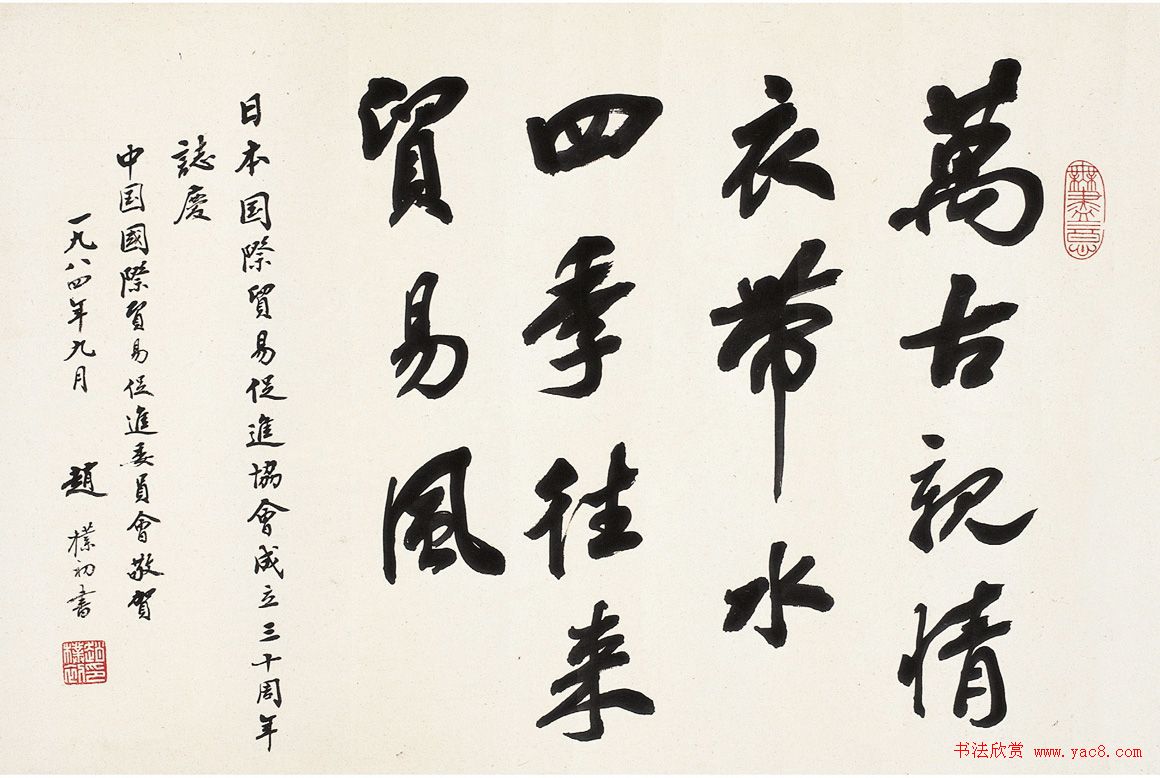 萬古親情
衣帶水
四季往来
貿易風
日本国際貿易促進協會成立三十周年
誌慶
中国國際貿易促進委員會敬賀
一九八四年九月 趙樸初書
無盡意
趙樸初印
书法欣赏 www.yac8.com